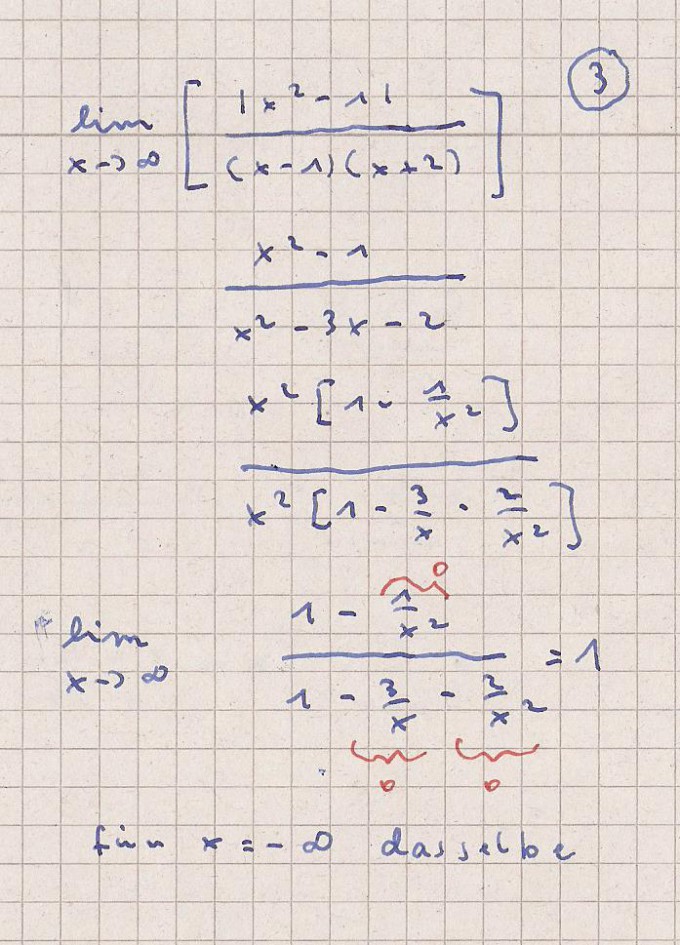 3
lim x→∞ [ |x² - 1| / (x-1)(x+2) ]
x² - 1 / x² - 3x - 2
x² [1 - 1/x²] / x² [1 - 3/x - 2/x²]
0
lim x→∞ 1 - 1/x² / 1 - 3/x - 2/x² = 1
0 0
für x = -∞ dasselbe